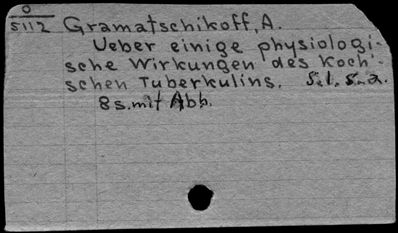 O
5112 Gramatschikoff, A.
Ueber einige physiologi-
sche Wirkungen des Koch'-
schen Tuberkulins. S.l. s.a.
8 s. mit Abb.